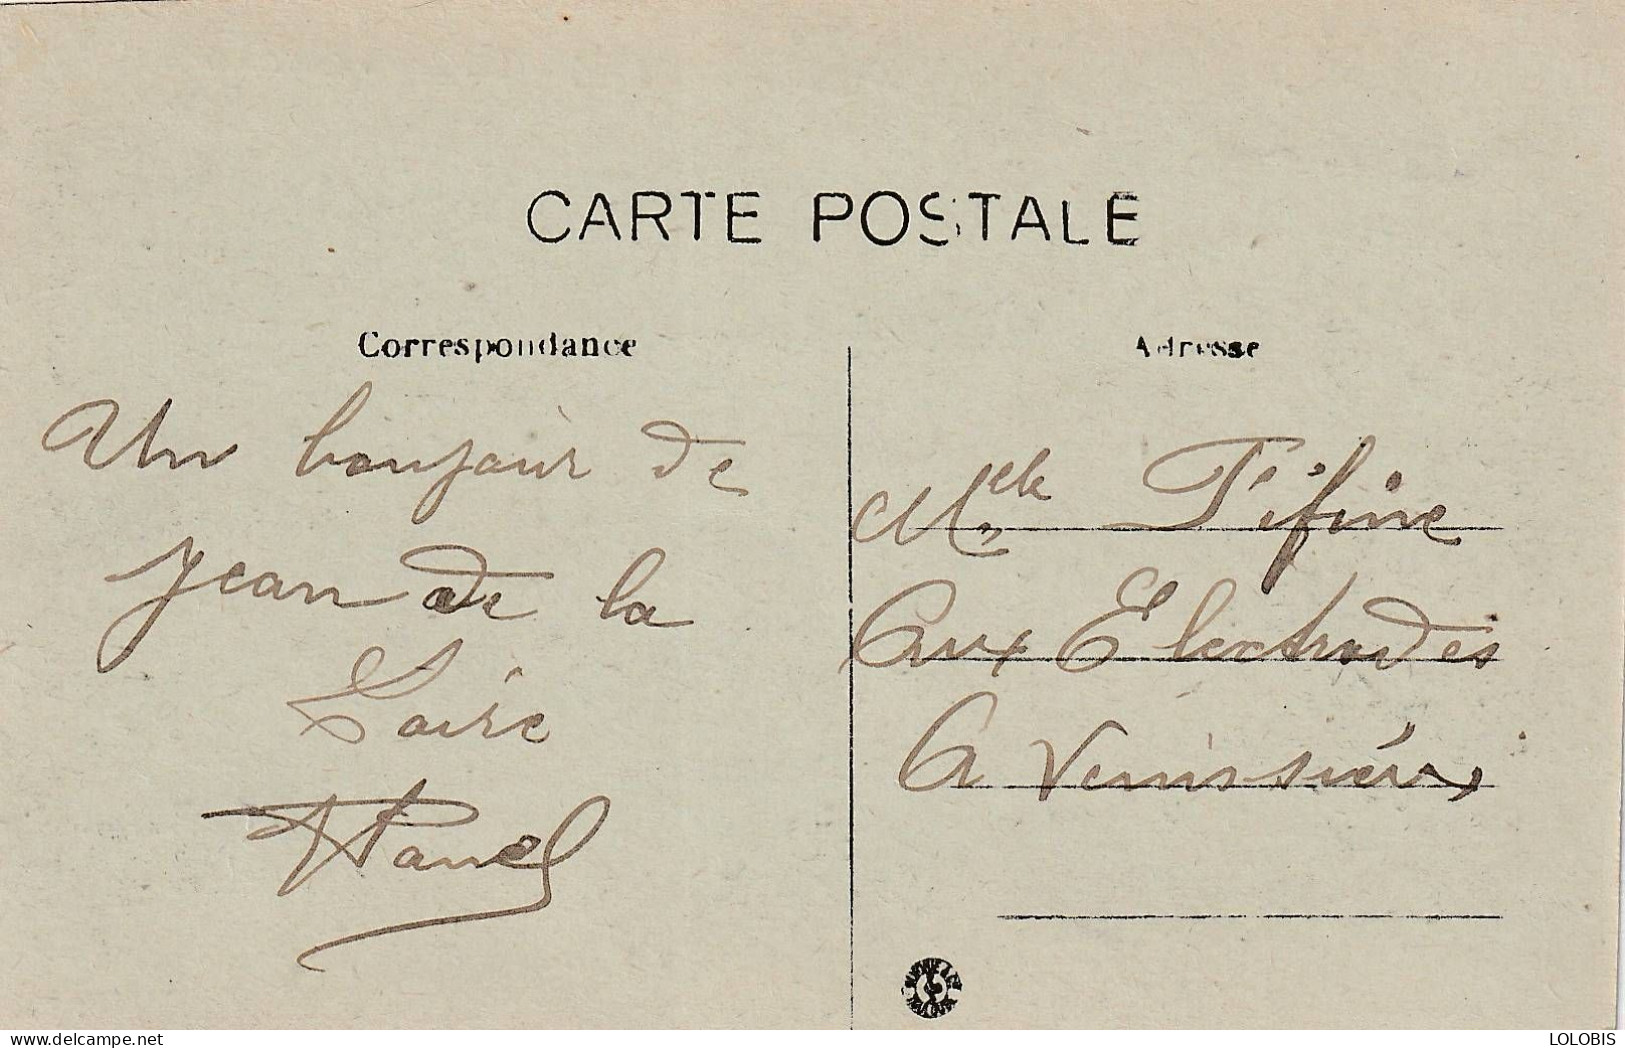 CARTE POSTALE
Correspondance
Un bonjour de
Jean de la
Loire
Adresse
Melle Fifine
Aux Electrodes
A Venissiéux
website-delcampe.net
LOLOBIS